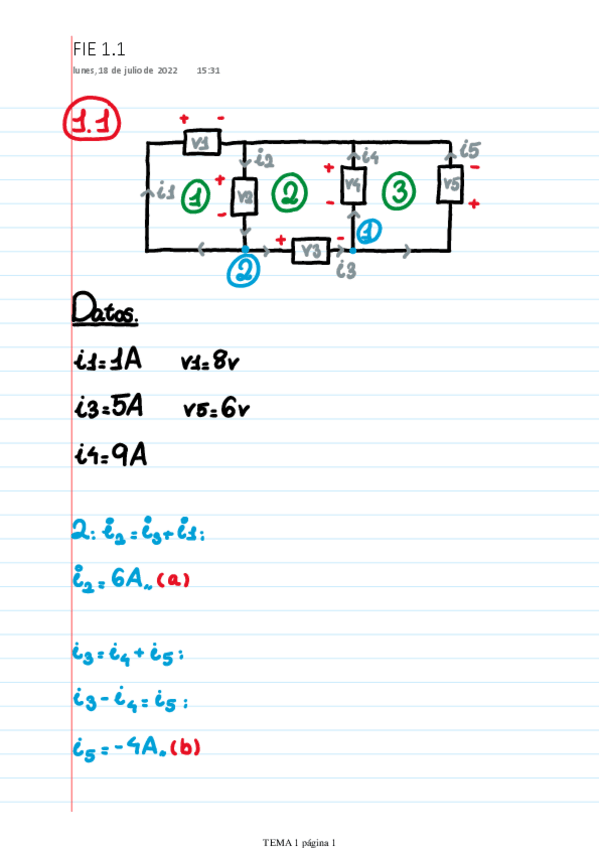 FIE 1.1
lunes, 18 de julio de 2022 15:31
1.1
+ -
v1
i2
i4
i5
i1
1
+
v2
-
2
+
v4
-
3
-
v5
+
1
+
v3
-
2
i3
Datos.
i1=1A v1=8v
i3=5A v5=6v
i4=9A
2: i2=i3+i1;
i2=6A,, (a)
i3=i4+i5;
i3-i4=i5;
i5=-4A,, (b)
TEMA 1 página 1